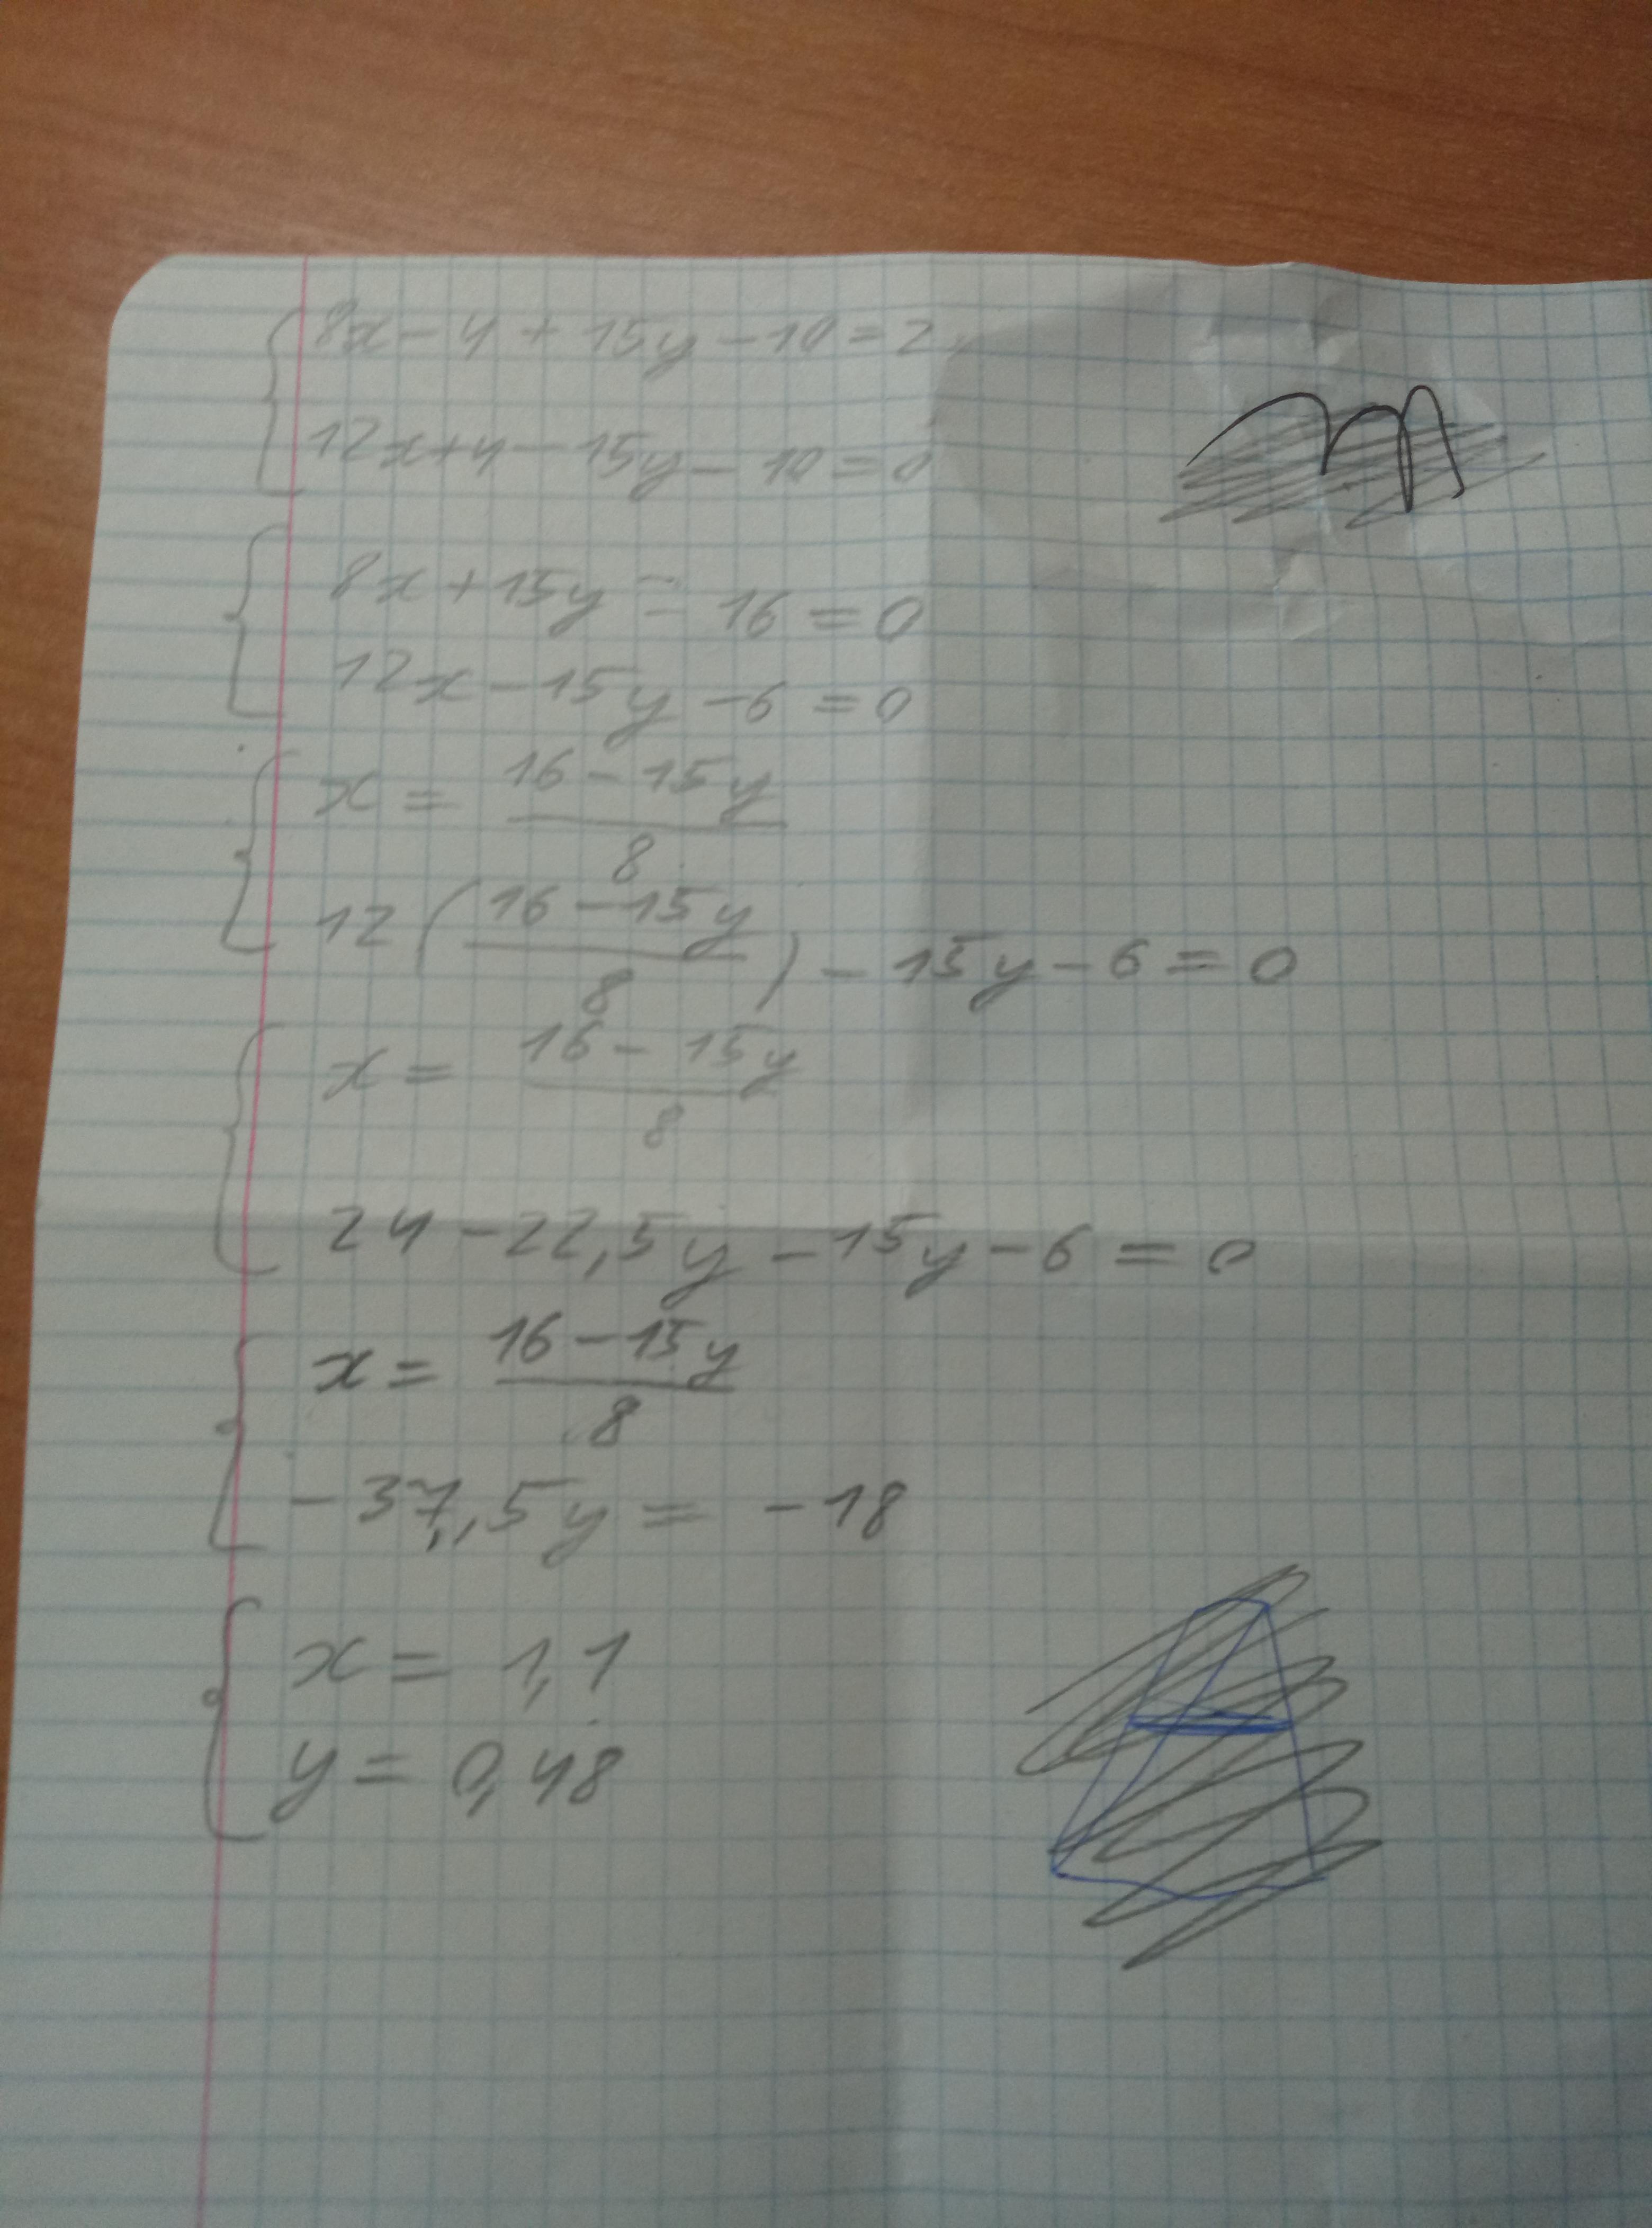 8x - 4 + 15y - 10 = 2
12x + 4 - 15y - 10 = 0
8x + 15y - 16 = 0
12x - 15y - 6 = 0
x = (16 - 15y)/8
12((16 - 15y)/8) - 15y - 6 = 0
x = (16 - 15y)/8
24 - 22,5y - 15y - 6 = 0
x = (16 - 15y)/8
-37,5y = -18
x = 1,1
y = 0,48